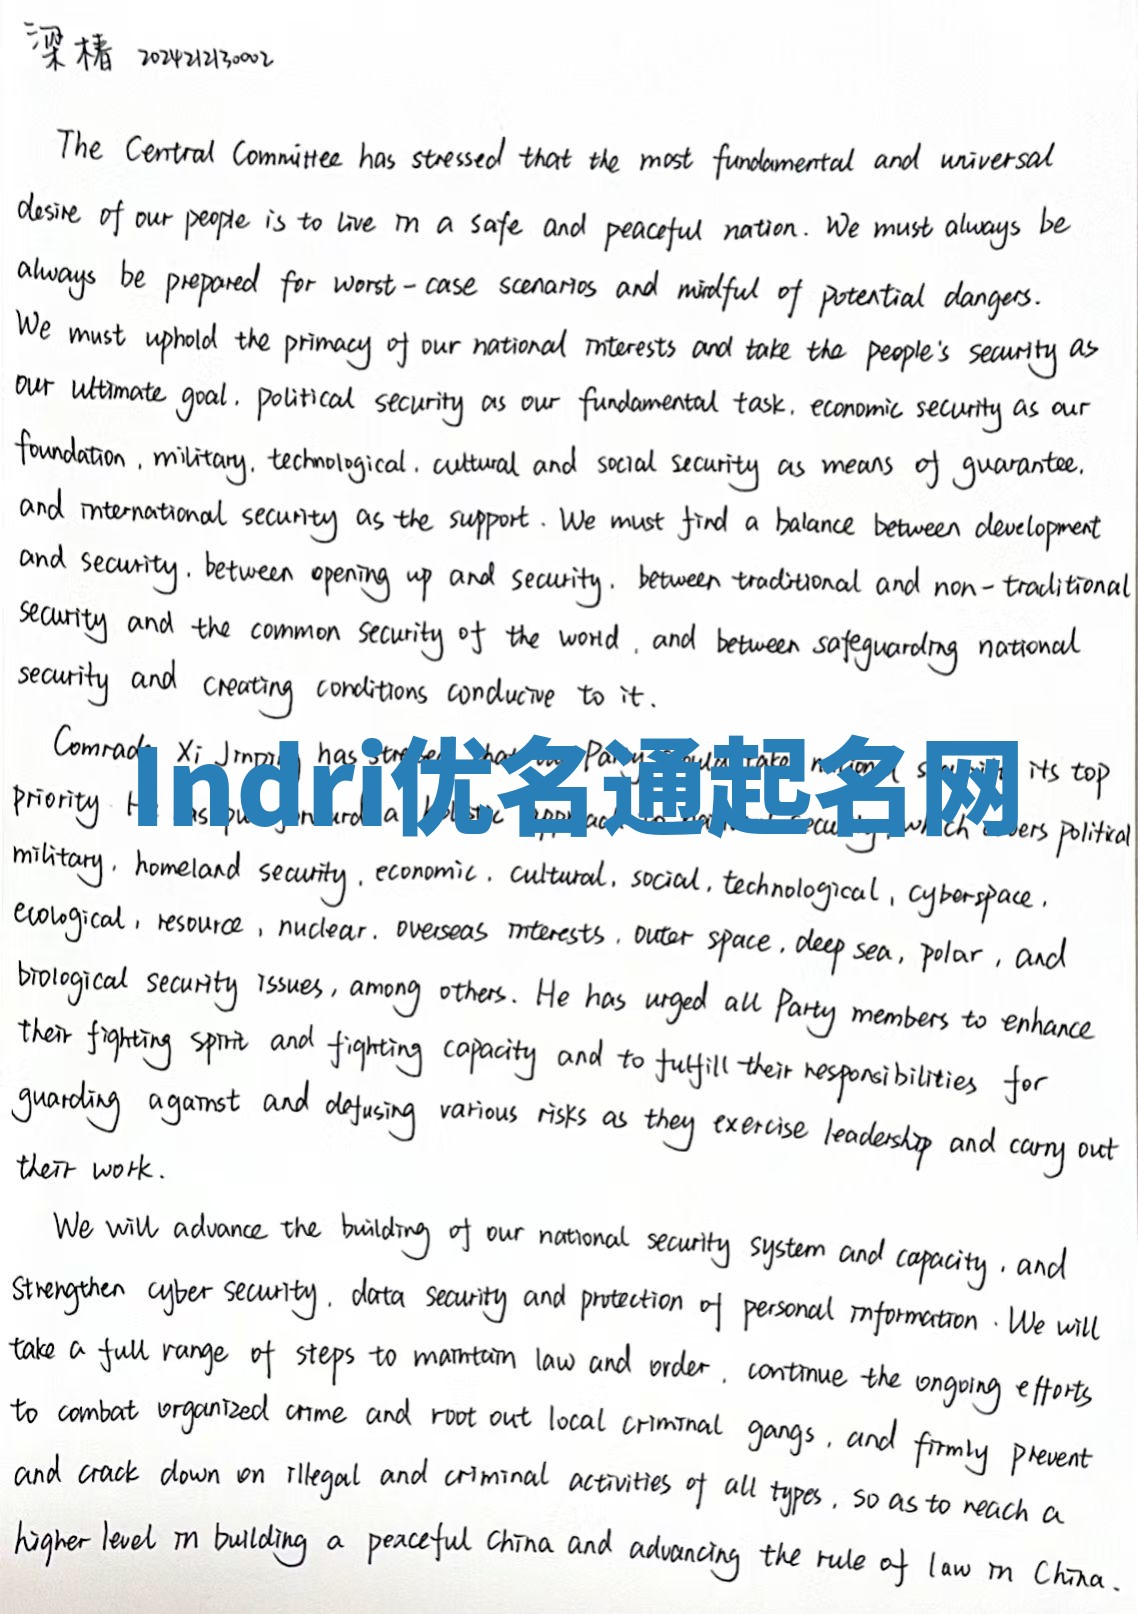 梁椿 2024212130002
The Central Committee has stressed that the most fundamental and universal
desire of our people is to live in a safe and peaceful nation. We must always be
always be prepared for worst-case scenarios and mindful of potential dangers.
We must uphold the primacy of our national interests and take the people's security as
our ultimate goal, political security as our fundamental task, economic security as our
foundation, military, technological, cultural and social security as means of guarantee,
and international security as the support. We must find a balance between development
and security, between opening up and security, between traditional and non-traditional
security and the common security of the world, and between safeguarding national
security and creating conditions conducive to it.
Comrade Xi Jinping has its top
Indri优名通起名网
priority political
military, homeland security, economic, cultural, social, technological, cyberspace,
ecological, resource, nuclear, overseas interests, outer space, deep sea, polar, and
biological security issues, among others. He has urged all Party members to enhance
their fighting spirit and fighting capacity and to fulfill their responsibilities for
guarding against and defusing various risks as they exercise leadership and carry out
their work.
We will advance the building of our national security system and capacity, and
strengthen cyber security, data security and protection of personal information. We will
take a full range of steps to maintain law and order, continue the ongoing efforts
to combat organized crime and root out local criminal gangs, and firmly prevent
and crack down on illegal and criminal activities of all types, so as to reach a
higher level in building a peaceful China and advancing the rule of law in China.